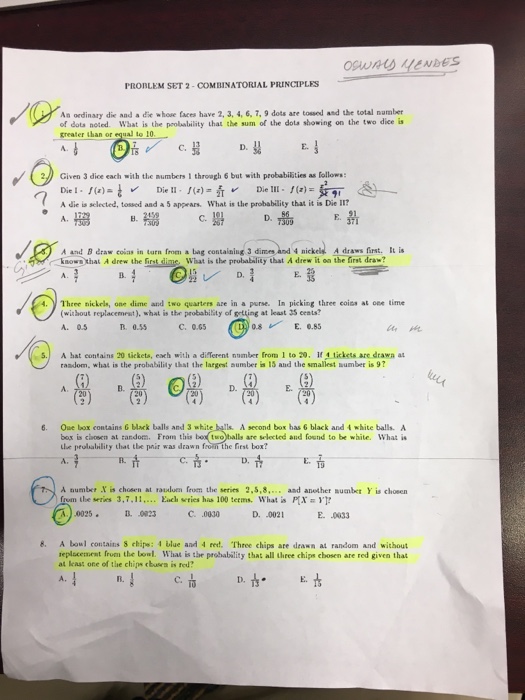 OSWALD MENDES
PROBLEM SET 2 - COMBINATORIAL PRINCIPLES
1. An ordinary die and a die whose faces have 2, 3, 4, 6, 7, 9 dots are tossed and the total number
of dots noted. What is the probability that the sum of the dots showing on the two dice is
greater than or equal to 10.
A. 1/9 B. 7/18 C. 13/36 D. 11/36 E. 1/3
2. Given 3 dice each with the numbers 1 through 6 but with probabilities as follows:
Die I - f(x) = 1/6 Die II - f(x) = x/21 Die III - f(x) = x²/91
A die is selected, tossed and a 5 appears. What is the probability that it is Die II?
?
A. 1729/7309 B. 2459/7309 C. 101/267 D. 86/7309 E. 91/371
3. A and B draw coins in turn from a bag containing 3 dimes and 4 nickels. A draws first. It is
Given
known that A drew the first dime. What is the probability that A drew it on the first draw?
A. 3/7 B. 4/7 C. 15/22 D. 3/4 E. 25/35
4. Three nickels, one dime and two quarters are in a purse. In picking three coins at one time
(without replacement), what is the probability of getting at least 35 cents?
A. 0.5 B. 0.55 C. 0.65 D. 0.8 E. 0.85
5. A hat contains 20 tickets, each with a different number from 1 to 20. If 4 tickets are drawn at
random, what is the probability that the largest number is 15 and the smallest number is 9?
6. One box contains 6 black balls and 3 white balls. A second box has 6 black and 4 white balls. A
box is chosen at random. From this box two balls are selected and found to be white. What is
the probability that the pair was drawn from the first box?
7. A number X is chosen at random from the series 2,5,8,... and another number Y is chosen
from the series 3,7,11,... Each series has 100 terms. What is P[X = Y]?
A. .0025 B. .0023 C. .0030 D. .0021 E. .0033
8. A bowl contains 8 chips: 4 blue and 4 red. Three chips are drawn at random and without
replacement from the bowl. What is the probability that all three chips chosen are red given that
at least one of the chips chosen is red?
A. 1/4 B. 1/8 C. 1/10 D. 1/13 E. 1/15